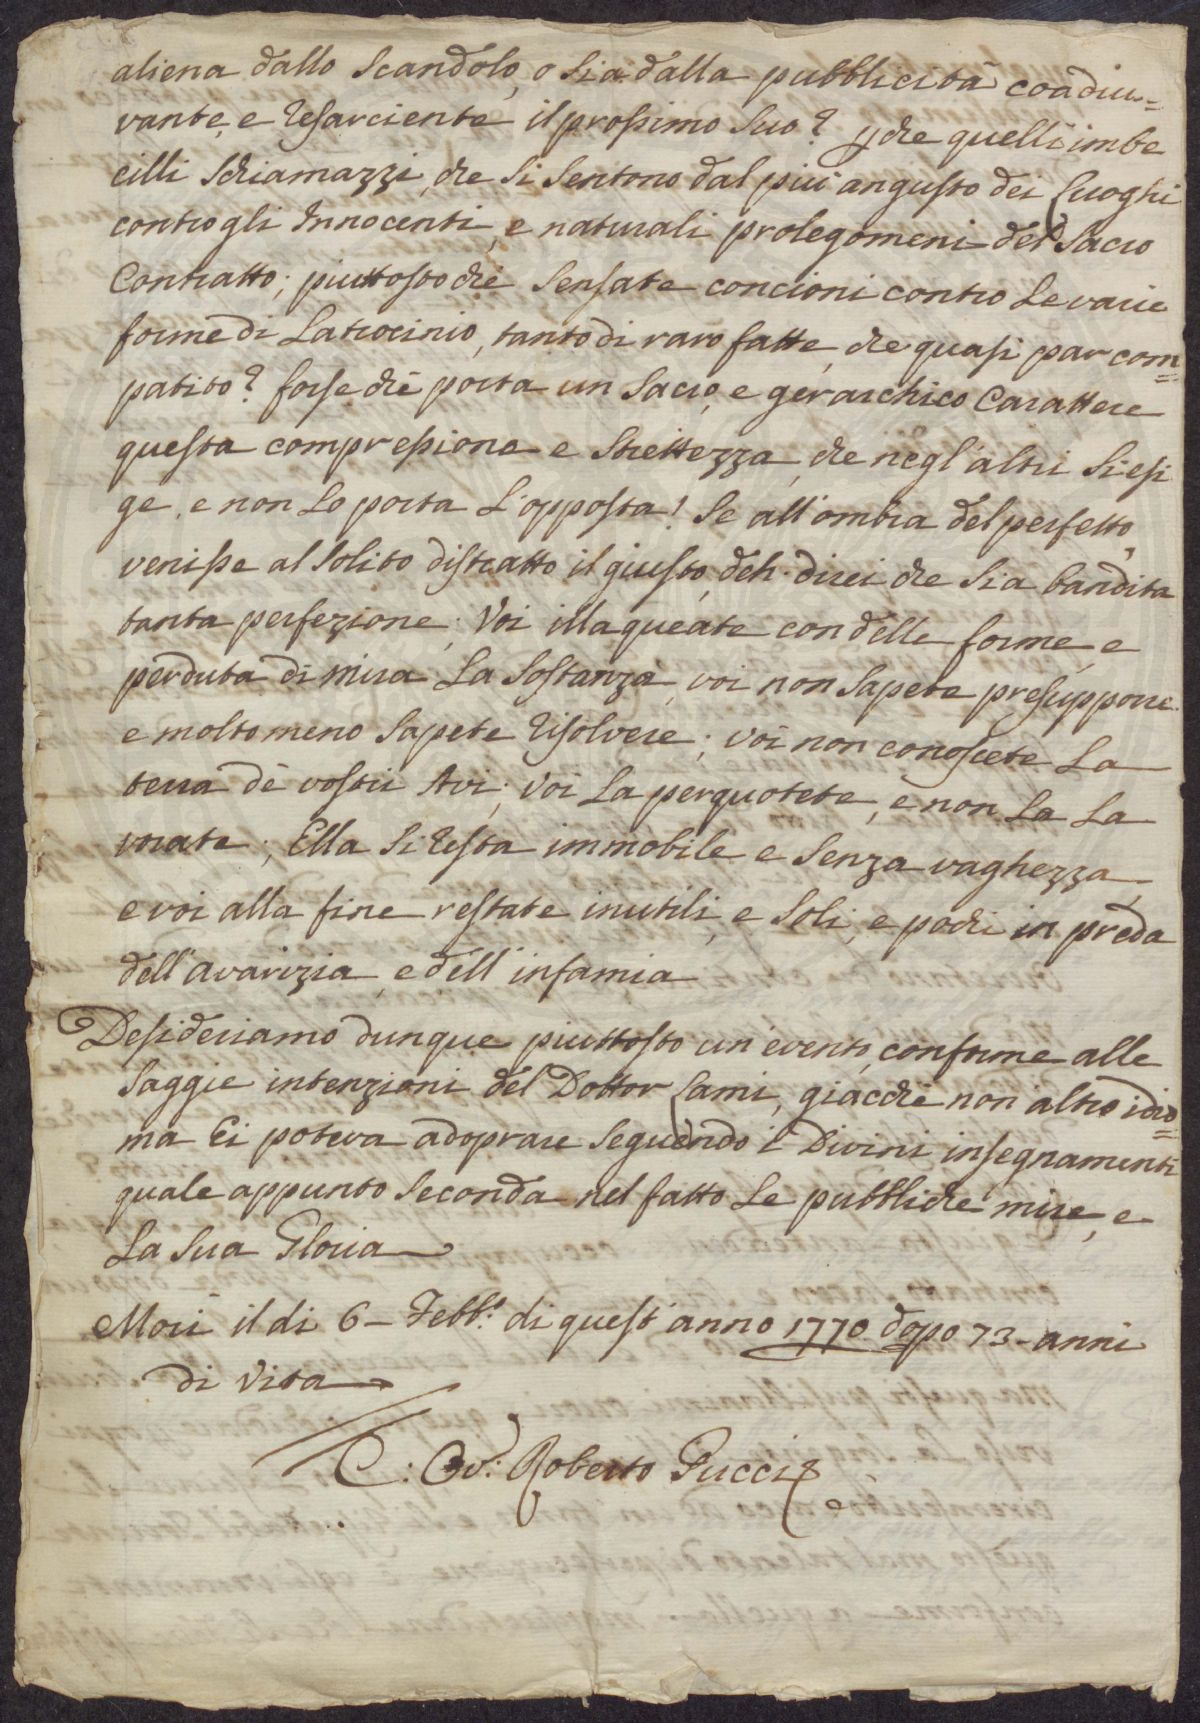 aliena dallo Scandolo, o sia dalla pubblicità coadiu=
vante, e resarciente il prossimo suo? che quelli imbe
cilli Schiamazzi, che si sentono dal più angusto dei Luoghi
contro gli Innocenti, e naturali prolegomeni del Sacro
Contratto; piuttosto che sensate concioni contro le varie
forme di Latrocinio, tanto di raro fatte, che quasi par com=
patito? forse che porta un Sacro, e gerarchico Carattere
questa compressione e Strettezza, che negl'altri si esi
ge, e non lo porta l'opposta! Se all'ombra del perfetto,
venisse al solito distratto il giusto, deh. direi che sia bandita
tanta perfezione; Voi illaqueate con delle forme, e
perduta di mira la Sostanza, voi non sapete presupporre
e molto meno sapete risolvere; voi non conoscete la
terra de vostri Avi; voi la perquotete, e non la la
vorate; Ella si resta immobile e senza vaghezza,
e voi alla fine restate inutili, e soli, e pochi in preda
dell'avarizia, e dell'infamia
Desideriamo dunque piuttosto un evento, conforme alle
saggie intenzioni del Dottor Lami, giacchè non altro idio=
ma Ei poteva adoprare seguendo i Divini insegnamenti
quale appunto seconda nel fatto le pubbliche mire, e
la sua Gloria
Morì il di 6 - Febb.º di quest'anno 1770 dopo 73 - anni
di Vita
C: Cav: Roberto Pucci